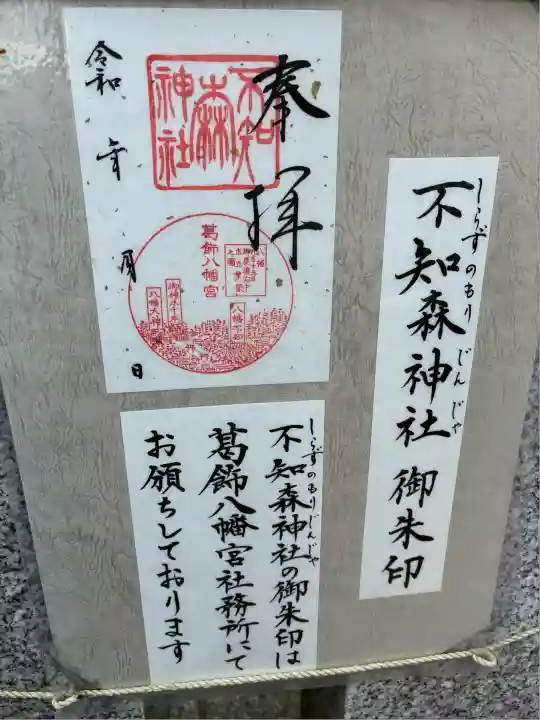 不知森神社 御朱印
しらずのもり じんじゃ
奉拝
不知
森
神社
令和 年 月 日
葛飾八幡宮
八幡不知森
御神木千本
八幡大神
不知森神社の御朱印は
しらずのもりじんじゃ
葛飾八幡宮社務所にて
お願ちしております